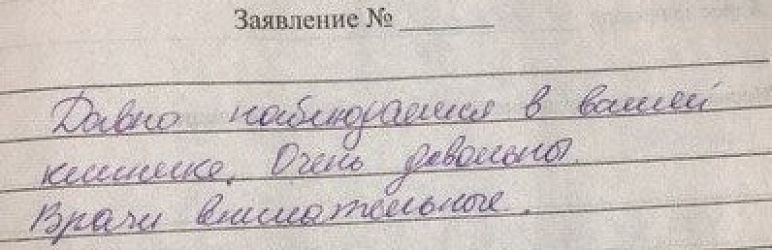 Заявление № ______
Давно наблюдаемся в вашей
клинике. Очень довольны.
Врачи внимательные.